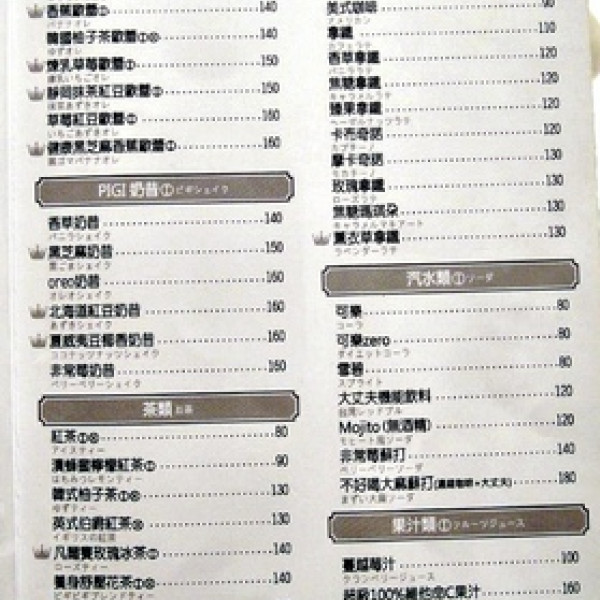 香蕉歐蕾 140
バナナオレ
韓國柚子茶歐蕾 140
ゆずオレ
煉乳草莓歐蕾 150
練乳いちごオレ
靜岡抹茶紅豆歐蕾 150
抹茶あずきオレ
草莓紅豆歐蕾 160
いちごあずきオレ
健康黑芝麻香蕉歐蕾 160
黒ゴマバナナオレ
PIGI 奶昔 ピギシェイク
香草奶昔 140
バニラシェイク
黑芝麻奶昔 150
黒ごまシェイク
oreo奶昔 160
オレオシェイク
北海道紅豆奶昔 160
あずきシェイク
夏威夷豆椰香奶昔 160
ココナッツナッツシェイク
非常莓奶昔 160
ベリーベリーシェイク
茶類 お茶
紅茶 80
アイスティー
漬蜂蜜檸檬紅茶 90
はちみつレモンティー
韓式柚子茶 130
ゆずティー
英式伯爵紅茶 130
イギリスの紅茶
凡爾賽玫瑰冰茶 140
ローズティー
養身舒壓花茶 140
ピギピギブレンドティー
美式咖啡 90
アメリカン
拿鐵 110
カフェラテ
香草拿鐵 120
バニララテ
焦糖拿鐵 120
キャラメルラテ
榛果拿鐵 120
ヘーゼルナッツラテ
卡布奇諾 120
カプチーノ
摩卡奇諾 130
モカチーノ
玫瑰拿鐵 130
ローズラテ
焦糖瑪琪朵 130
キャラメルマルアート
薰衣草拿鐵 130
ラベンダーラテ
汽水類 ソーダ
可樂 80
コーラ
可樂zero 80
ダイエットコーラ
雪碧 80
スプライト
大丈夫機能飲料 120
台湾レッドブル
Mojito (無酒精) 120
モヒート風ソーダ
非常莓蘇打 140
ベリーベリーソーダ
不好喝大麻蘇打(濃縮咖啡+大丈夫) 180
まずい大麻ソーダ
果汁類 フルーツジュース
蔓越莓汁 100
クランベリージュース
超級100%維他命C果汁 160